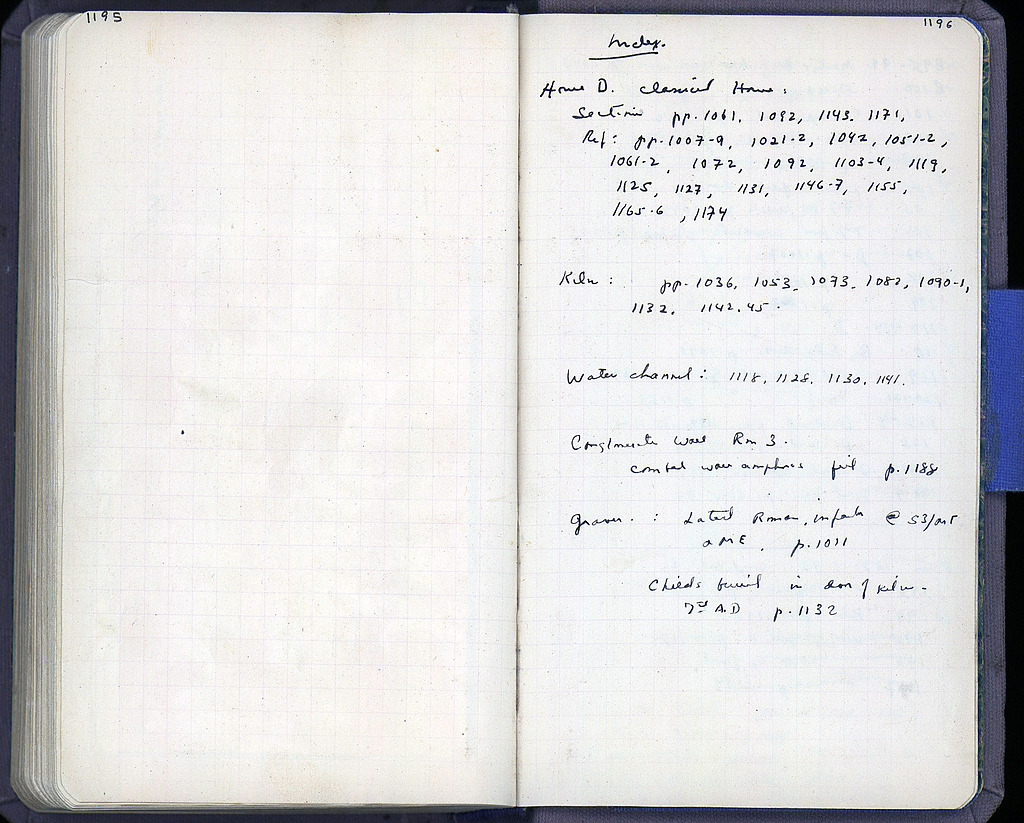 1195
1196
Index.
House D. Classical House:
Section pp. 1061, 1092, 1143. 1171,
Ref: pp. 1007-9, 1021-2, 1042, 1051-2,
1061-2, 1072, 1092, 1103-4, 1119,
1125, 1127, 1131, 1146-7, 1155,
1165-6, 1174
Kiln: pp. 1036, 1053, 1073, 1082, 1090-1,
1132, 1142.45.
Water channel: 1118, 1128, 1130, 1141.
Conglomerate wall Rm 3.
wall amphoras fill p. 1188
Graves: Roman, @ 53/
p. 1011
Childs burial in door of kiln -
7th A.D p. 1132